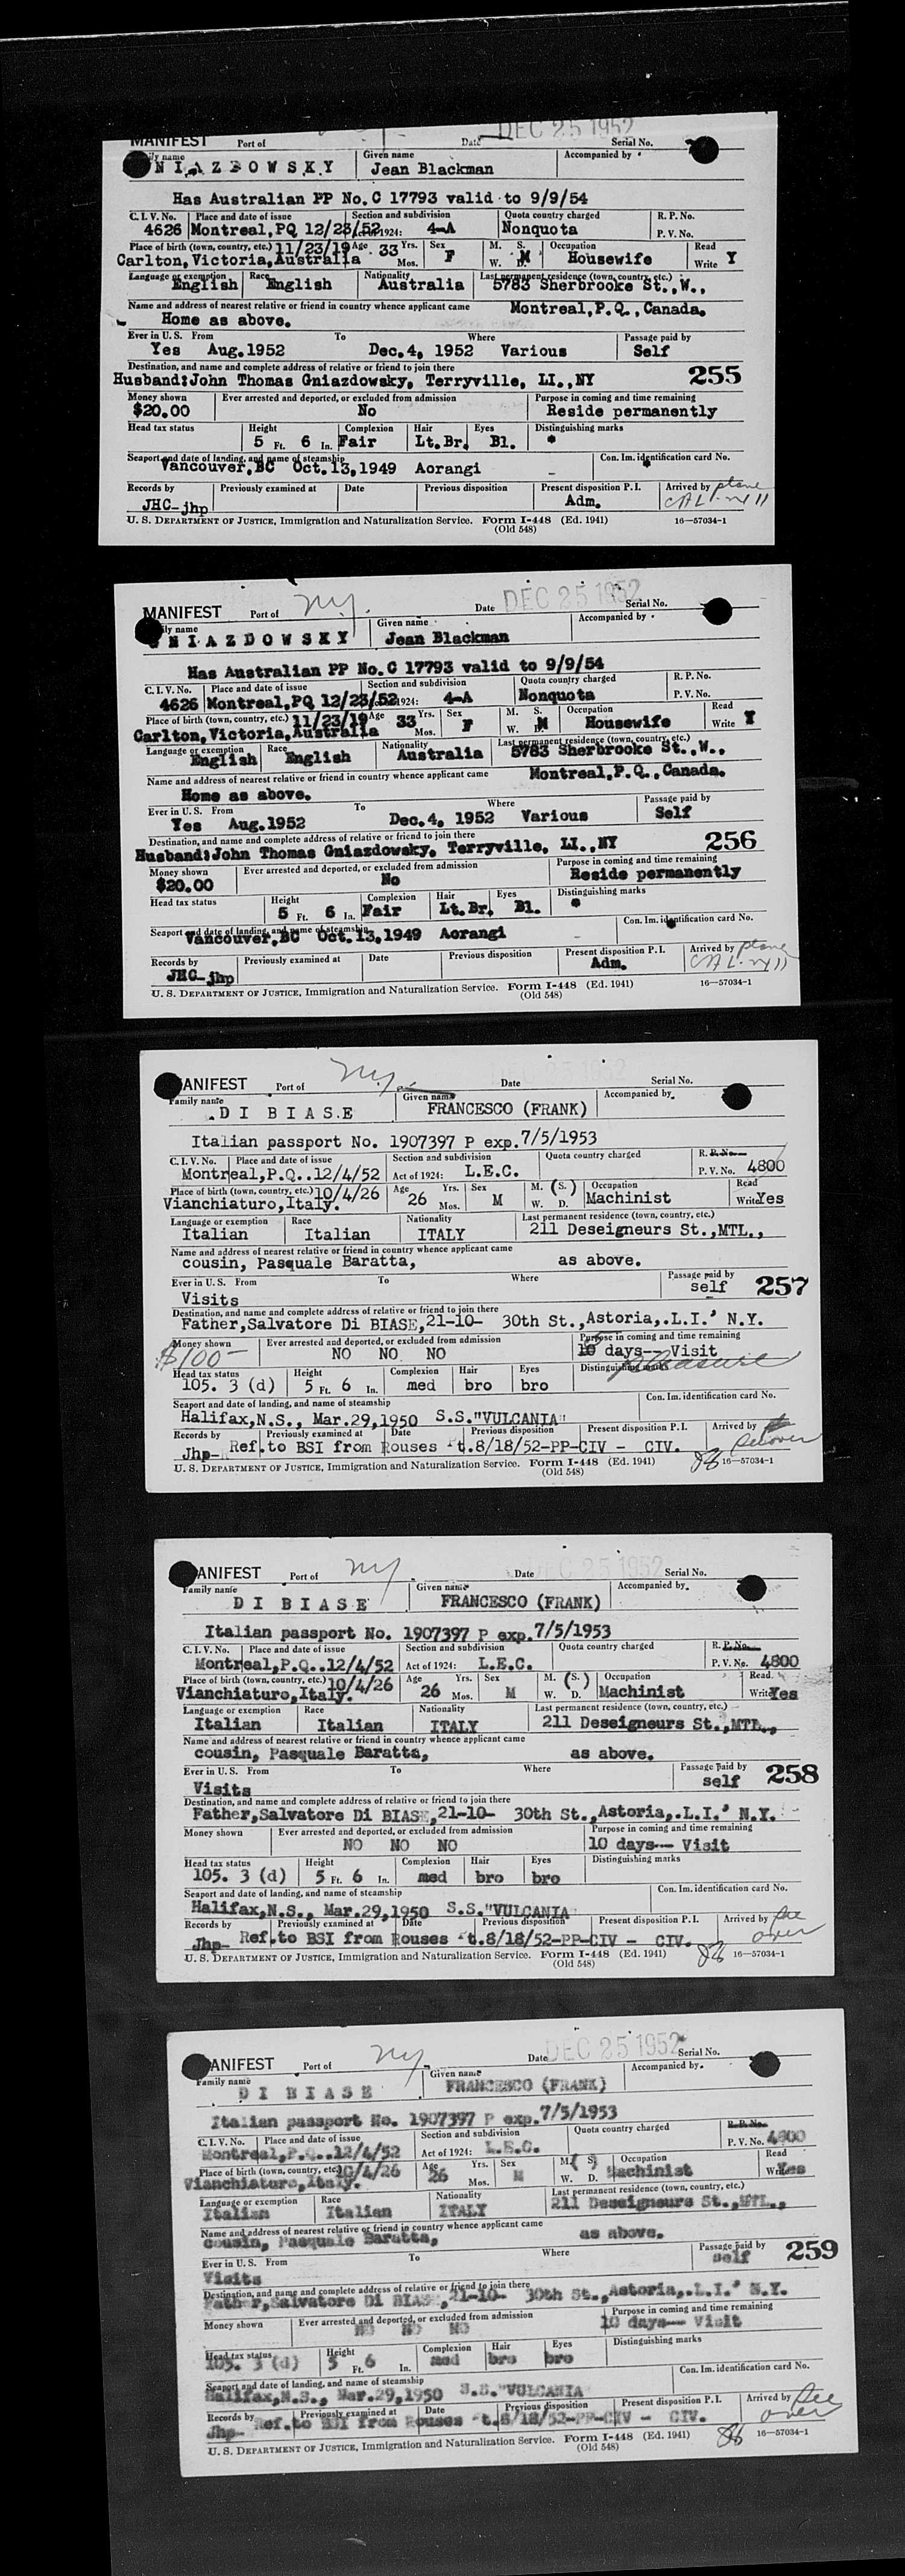 DEC 25 1952
MANIFEST Port of Date Serial No.
Family name Given name Accompanied by
NIAZDOWSKY Jean Blackman
Has Australian PP No. C 17793 valid to 9/9/54
C. I. V. No. Place and date of issue Section and subdivision Quota country charged R. P. No.
4626 Montreal,PQ 12/23/52 Act of 1924: 4-A Nonquota P. V. No.
Place of birth (town, country, etc.) 11/23/19 Age 33 Yrs. Sex M. S. Occupation Read
Carlton, Victoria, Australia Mos. F W. D. M Housewife Write Y
Language or exemption Race Nationality Last permanent residence (town, country, etc.)
English English Australia 5783 Sherbrooke St.,W.,
Name and address of nearest relative or friend in country whence applicant came Montreal,P.Q.,Canada.
Home as above.
Ever in U. S. From To Where Passage paid by
Yes Aug.1952 Dec.4, 1952 Various Self
Destination, and name and complete address of relative or friend to join there
Husband:John Thomas Gniazdowsky, Terryville, LI.,NY 255
Money shown Ever arrested and deported, or excluded from admission Purpose in coming and time remaining
$20.00 No Reside permanently
Head tax status Height Complexion Hair Eyes Distinguishing marks
5 Ft. 6 In. Fair Lt.Br. Bl.
Seaport and date of landing, and name of steamship Con. Im. identification card No.
Vancouver,BC Oct.13,1949 Aorangi -
Records by Previously examined at Date Previous disposition Present disposition P. I. Arrived by plane
JHC-jhp Adm. CAL
U. S. DEPARTMENT OF JUSTICE, Immigration and Naturalization Service. Form I-448 (Ed. 1941) 16—57034-1
(Old 548)
MANIFEST Port of N.Y. Date DEC 25 1952 Serial No.
Family name Given name Accompanied by
NIAZDOWSKY Jean Blackman
Has Australian PP No. C 17793 valid to 9/9/54
C. I. V. No. Place and date of issue Section and subdivision Quota country charged R. P. No.
4626 Montreal,PQ 12/23/52 Act of 1924: 4-A Nonquota P. V. No.
Place of birth (town, country, etc.) 11/23/19 Age 33 Yrs. Sex M. S. Occupation Read
Carlton, Victoria, Australia Mos. F W. D. M Housewife Write Y
Language or exemption Race Nationality Last permanent residence (town, country, etc.)
English English Australia 5783 Sherbrooke St.,W.,
Name and address of nearest relative or friend in country whence applicant came Montreal,P.Q.,Canada.
Home as above.
Ever in U. S. From To Where Passage paid by
Yes Aug.1952 Dec.4, 1952 Various Self
Destination, and name and complete address of relative or friend to join there
Husband:John Thomas Gniazdowsky, Terryville, LI.,NY 256
Money shown Ever arrested and deported, or excluded from admission Purpose in coming and time remaining
$20.00 No Reside permanently
Head tax status Height Complexion Hair Eyes Distinguishing marks
5 Ft. 6 In. Fair Lt.Br. Bl.
Seaport and date of landing, and name of steamship Con. Im. identification card No.
Vancouver,BC Oct.13,1949 Aorangi -
Records by Previously examined at Date Previous disposition Present disposition P. I. Arrived by plane
JHC-jhp Adm. CAL
U. S. DEPARTMENT OF JUSTICE, Immigration and Naturalization Service. Form I-448 (Ed. 1941) 16—57034-1
(Old 548)
MANIFEST Port of N.Y. Date Serial No.
Family name Given name Accompanied by
DI BIASE FRANCESCO (FRANK)
Italian passport No. 1907397 P exp.7/5/1953
C. I. V. No. Place and date of issue Section and subdivision Quota country charged R. P. No.
Montreal,P.Q..12/4/52 Act of 1924: L.E.C. P. V. No. 4800
Place of birth (town, country, etc.) 10/4/26 Age Yrs. Sex M. (S.) Occupation Read
Vianchiaturo,Italy. 26 Mos. M W. D. Machinist Write Yes
Language or exemption Race Nationality Last permanent residence (town, country, etc.)
Italian Italian ITALY 211 Deseigneurs St.,MTL.,
Name and address of nearest relative or friend in country whence applicant came
cousin, Pasquale Baratta, as above.
Ever in U. S. From To Where Passage paid by
Visits self 257
Destination, and name and complete address of relative or friend to join there
Father,Salvatore Di BIASE,21-10- 30th St.,Astoria,.L.I.' N.Y.
Money shown Ever arrested and deported, or excluded from admission Purpose in coming and time remaining
$100- NO NO NO 10 days-- Visit
pleasure
Head tax status Height Complexion Hair Eyes Distinguishing marks
105. 3 (d) 5 Ft. 6 In. med bro bro
Seaport and date of landing, and name of steamship Con. Im. identification card No.
Halifax,N.S., Mar.29,1950 S.S."VULCANIA"
Records by Previously examined at Date Previous disposition Present disposition P. I. Arrived by
Jhp- Ref.to BSI from Rouses t.8/18/52-PP-CIV - CIV. See over
U. S. DEPARTMENT OF JUSTICE, Immigration and Naturalization Service. Form I-448 (Ed. 1941) 16—57034-1
(Old 548)
MANIFEST Port of NY Date DEC 25 1952 Serial No.
Family name Given name Accompanied by
DI BIASE FRANCESCO (FRANK)
Italian passport No. 1907397 P exp.7/5/1953
C. I. V. No. Place and date of issue Section and subdivision Quota country charged R. P. No.
Montreal,P.Q..12/4/52 Act of 1924: L.E.C. P. V. No. 4800
Place of birth (town, country, etc.) 10/4/26 Age Yrs. Sex M. (S.) Occupation Read
Vianchiaturo,Italy. 26 Mos. M W. D. Machinist Write Yes
Language or exemption Race Nationality Last permanent residence (town, country, etc.)
Italian Italian ITALY 211 Deseigneurs St.,MTL.,
Name and address of nearest relative or friend in country whence applicant came
cousin, Pasquale Baratta, as above.
Ever in U. S. From To Where Passage paid by
Visits self 258
Destination, and name and complete address of relative or friend to join there
Father,Salvatore Di BIASE,21-10- 30th St.,Astoria,.L.I.' N.Y.
Money shown Ever arrested and deported, or excluded from admission Purpose in coming and time remaining
NO NO NO 10 days-- Visit
Head tax status Height Complexion Hair Eyes Distinguishing marks
105. 3 (d) 5 Ft. 6 In. med bro bro
Seaport and date of landing, and name of steamship Con. Im. identification card No.
Halifax,N.S., Mar.29,1950 S.S."VULCANIA
Records by Previously examined at Date Previous disposition Present disposition P. I. Arrived by See
Jhp- Ref.to BSI from Rouses t.8/18/52-PP-CIV - CIV. over
U. S. DEPARTMENT OF JUSTICE, Immigration and Naturalization Service. Form I-448 (Ed. 1941) 16—57034-1
(Old 548)
MANIFEST Port of NY. Date DEC 25 1952 Serial No.
Family name Given name Accompanied by
DI BIASE FRANCESCO (FRANK)
Italian passport No. 1907397 P exp.7/5/1953
C. I. V. No. Place and date of issue Section and subdivision Quota country charged R. P. No.
Montreal,P.Q..12/4/52 Act of 1924: L.E.C. P. V. No. 4800
Place of birth (town, country, etc.) 10/4/26 Age Yrs. Sex M. (S.) Occupation Read
Vianchiaturo,Italy. 26 Mos. M W. D. Machinist Write Yes
Language or exemption Race Nationality Last permanent residence (town, country, etc.)
Italian Italian ITALY 211 Deseigneurs St.,MTL.,
Name and address of nearest relative or friend in country whence applicant came
cousin, Pasquale Baratta, as above.
Ever in U. S. From To Where Passage paid by
Visits self 259
Destination, and name and complete address of relative or friend to join there
Father,Salvatore Di BIASE,21-10- 30th St.,Astoria,.L.I.' N.Y.
Money shown Ever arrested and deported, or excluded from admission Purpose in coming and time remaining
NO NO NO 10 days-- Visit
Head tax status Height Complexion Hair Eyes Distinguishing marks
105. 3 (d) 5 Ft. 6 In. med bro bro
Seaport and date of landing, and name of steamship Con. Im. identification card No.
Halifax,N.S., Mar.29,1950 S.S."VULCANIA
Records by Previously examined at Date Previous disposition Present disposition P. I. Arrived by See
Jhp- Ref.to BSI from Rouses t.8/18/52-PP-CIV - CIV. over
U. S. DEPARTMENT OF JUSTICE, Immigration and Naturalization Service. Form I-448 (Ed. 1941) 16—57034-1
(Old 548)